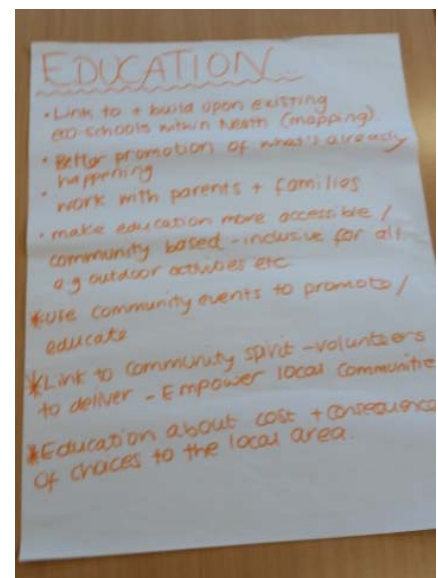 EDUCATION
• Link to + build upon existing
eco-schools within Neath (mapping).
• Better promotion of what's already
happening
• work with parents + families
• make education more accessible /
community based - inclusive for all.
e.g outdoor activities etc
*use community events to promote /
educate
*Link to community spirit - volunteers
to deliver - Empower local communitie
*Education about cost + consequence
of choices to the local area.